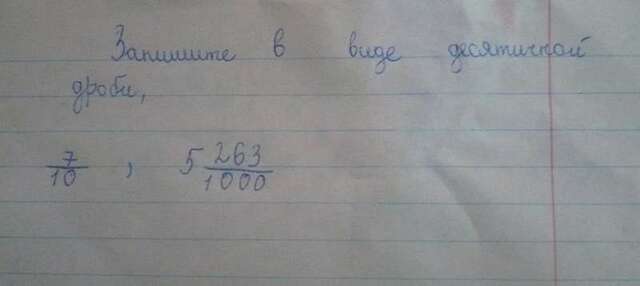 Запишите в виде десятичной
дроби,
7/10 , 5 263/1000